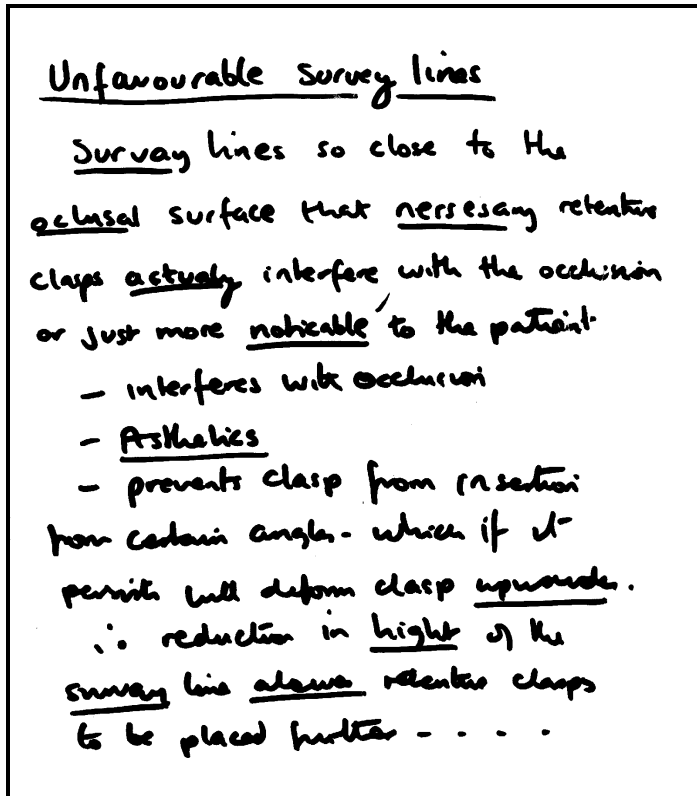 Unfavourable Survey lines
Survay lines so close to the
oclusal surface that nersesary retentive
clasps actualy interfere with the occlusion
or just more noticable to the patient.
- interferes with occlusion
- Asthetics
- prevents clasp from insertion
from certain angles - which if it
permits will deform clasp upwards.
∴ reduction in hight of the
survay line alows retentive clasps
to be placed further - - - -